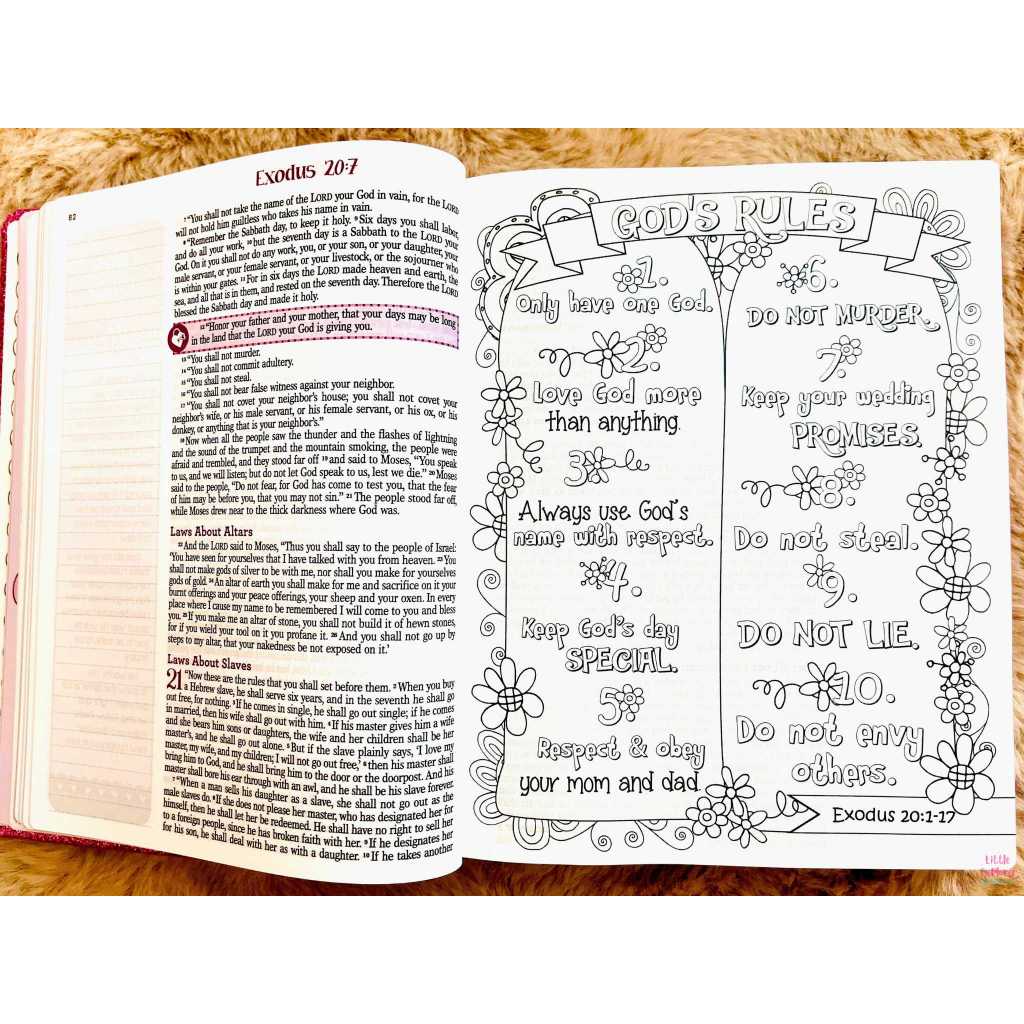 82
Exodus 20:7
7 "You shall not take the name of the LORD your God in vain, for the LORD
will not hold him guiltless who takes his name in vain.
8 "Remember the Sabbath day, to keep it holy. 9 Six days you shall labor,
and do all your work, 10 but the seventh day is a Sabbath to the LORD your
God. On it you shall not do any work, you, or your son, or your daughter, your
male servant, or your female servant, or your livestock, or the sojourner who
is within your gates. 11 For in six days the LORD made heaven and earth, the
sea, and all that is in them, and rested on the seventh day. Therefore the LORD
blessed the Sabbath day and made it holy.
12 "Honor your father and your mother, that your days may be long
in the land that the LORD your God is giving you.
13 "You shall not murder.
14 "You shall not commit adultery.
15 "You shall not steal.
16 "You shall not bear false witness against your neighbor.
17 "You shall not covet your neighbor's house; you shall not covet your
neighbor's wife, or his male servant, or his female servant, or his ox, or his
donkey, or anything that is your neighbor's."
18 Now when all the people saw the thunder and the flashes of lightning
and the sound of the trumpet and the mountain smoking, the people were
afraid and trembled, and they stood far off 19 and said to Moses, "You speak
to us, and we will listen; but do not let God speak to us, lest we die." 20 Moses
said to the people, "Do not fear, for God has come to test you, that the fear
of him may be before you, that you may not sin." 21 The people stood far off,
while Moses drew near to the thick darkness where God was.
Laws About Altars
22 And the LORD said to Moses, "Thus you shall say to the people of Israel:
'You have seen for yourselves that I have talked with you from heaven. 23 You
shall not make gods of silver to be with me, nor shall you make for yourselves
gods of gold. 24 An altar of earth you shall make for me and sacrifice on it your
burnt offerings and your peace offerings, your sheep and your oxen. In every
place where I cause my name to be remembered I will come to you and bless
you. 25 If you make me an altar of stone, you shall not build it of hewn stones,
for if you wield your tool on it you profane it. 26 And you shall not go up by
steps to my altar, that your nakedness be not exposed on it.'
Laws About Slaves
21 "Now these are the rules that you shall set before them. 2 When you buy
a Hebrew slave, he shall serve six years, and in the seventh he shall go
out free, for nothing. 3 If he comes in single, he shall go out single; if he comes
in married, then his wife shall go out with him. 4 If his master gives him a wife
and she bears him sons or daughters, the wife and her children shall be her
master's, and he shall go out alone. 5 But if the slave plainly says, 'I love my
master, my wife, and my children; I will not go out free,' 6 then his master shall
bring him to God, and he shall bring him to the door or the doorpost. And his
master shall bore his ear through with an awl, and he shall be his slave forever.
7 "When a man sells his daughter as a slave, she shall not go out as the
male slaves do. 8 If she does not please her master, who has designated her for
himself, then he shall let her be redeemed. He shall have no right to sell her
to a foreign people, since he has broken faith with her. 9 If he designates her
for his son, he shall deal with her as with a daughter. 10 If he takes another
GOD'S RULES
1.
Only have one God.
2.
Love God more
than anything.
3.
Always use God's
name with respect.
4.
Keep God's day
SPECIAL.
5.
Respect & obey
your mom and dad.
6.
DO NOT MURDER.
7.
Keep your wedding
PROMISES.
8.
Do not steal.
9.
DO NOT LIE.
10.
Do not envy
others.
Exodus 20:1-17
Little